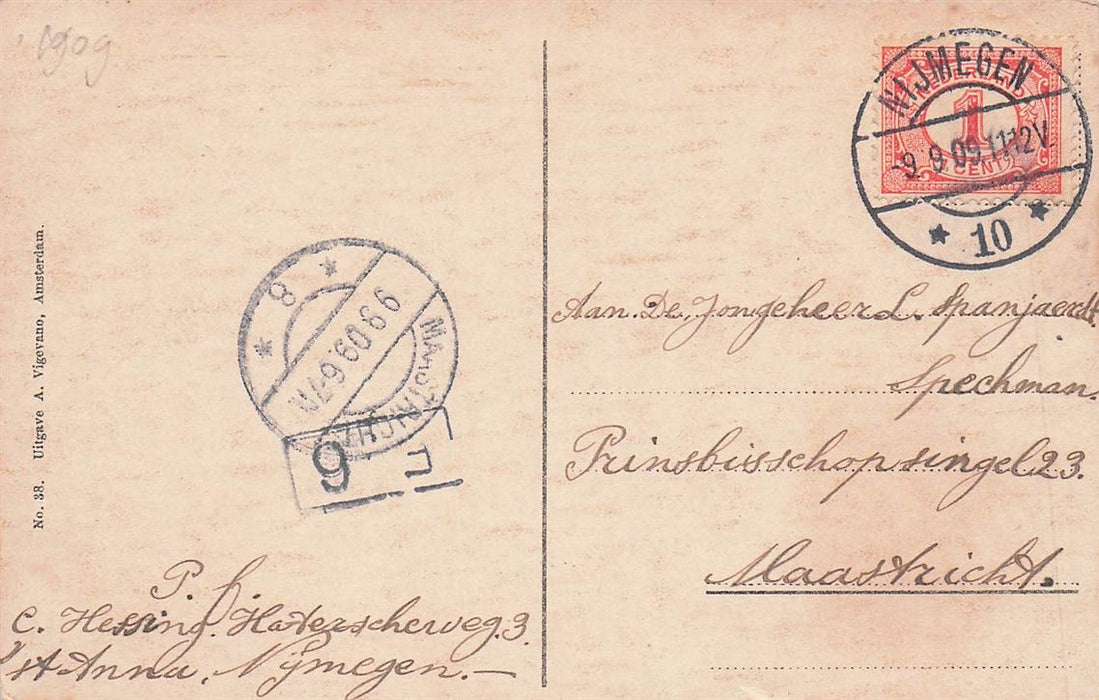 1909
NIJMEGEN
NEDERLAND
1
CENT
9. 9 09 11-12V.
10
No. 38. Uitgave A. Vigevano, Amsterdam.
8
9 9 09. 6-7N
MAASTRICHT
9
Aan. De Jongeheer L. Spanjaerdt
Spechman.
Prinsbisschopsingel 23.
Maastricht.
P. f.
C. Hessing. Hatterscheweg. 3.
St Anna, Nijmegen. —